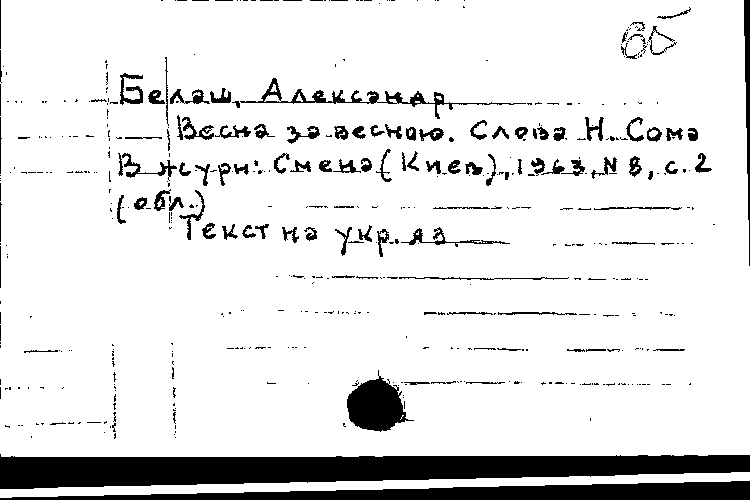 65
Белаш, Александр.
Весна за весною. Слова Н. Сома
В журн: Смена (Киев), 1963, N 8, с. 2
(обл.)
Текст на укр. яз.